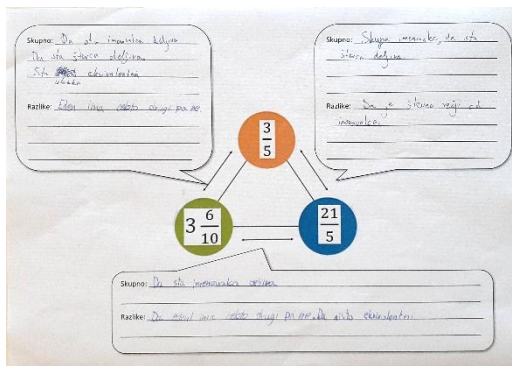 Skupno: Da sta imenovalca deljiva
Da sta števca deljiva.
Sta ekvivalentna
Razlike: Eden ima celoto drugi pa ne.
Skupno: Skupni imenovalec, da sta
števca deljiva.
Razlike: Da je števec večji od
imenovalca.
3
5
3 6
10
21
5
Skupno: Da sta imenovalca deljiva
Razlike: Da eden ima celoto drugi pa ne. Da nista ekvivalentni.